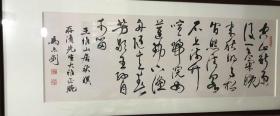 空山新雨
後天氣晚
來秋明月松
間照清泉
石上流竹
喧歸浣女
蓮動下漁
舟隨意春
芳歇王孫自
可留
王維山居秋暝
先生大雅正腕